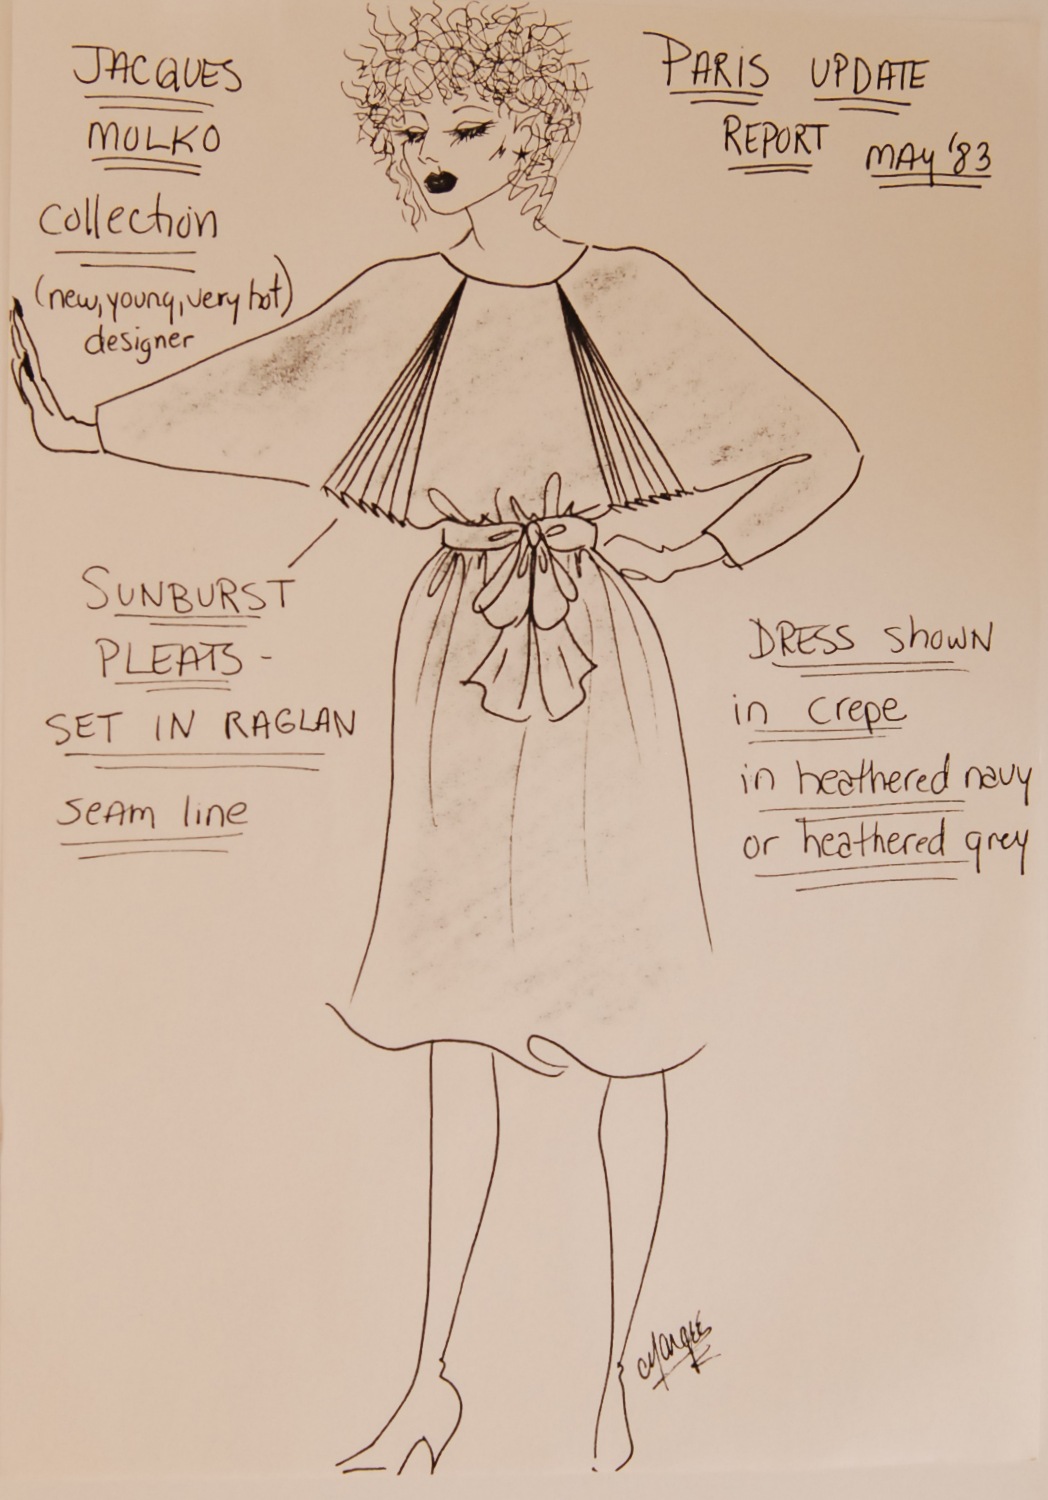 JACQUES
MOLKO
collection
(new, young, very hot)
designer
PARIS UPDATE
REPORT MAY '83
SUNBURST
PLEATS -
SET IN RAGLAN
seam line
DRESS shown
in crepe
in heathered navy
or heathered grey